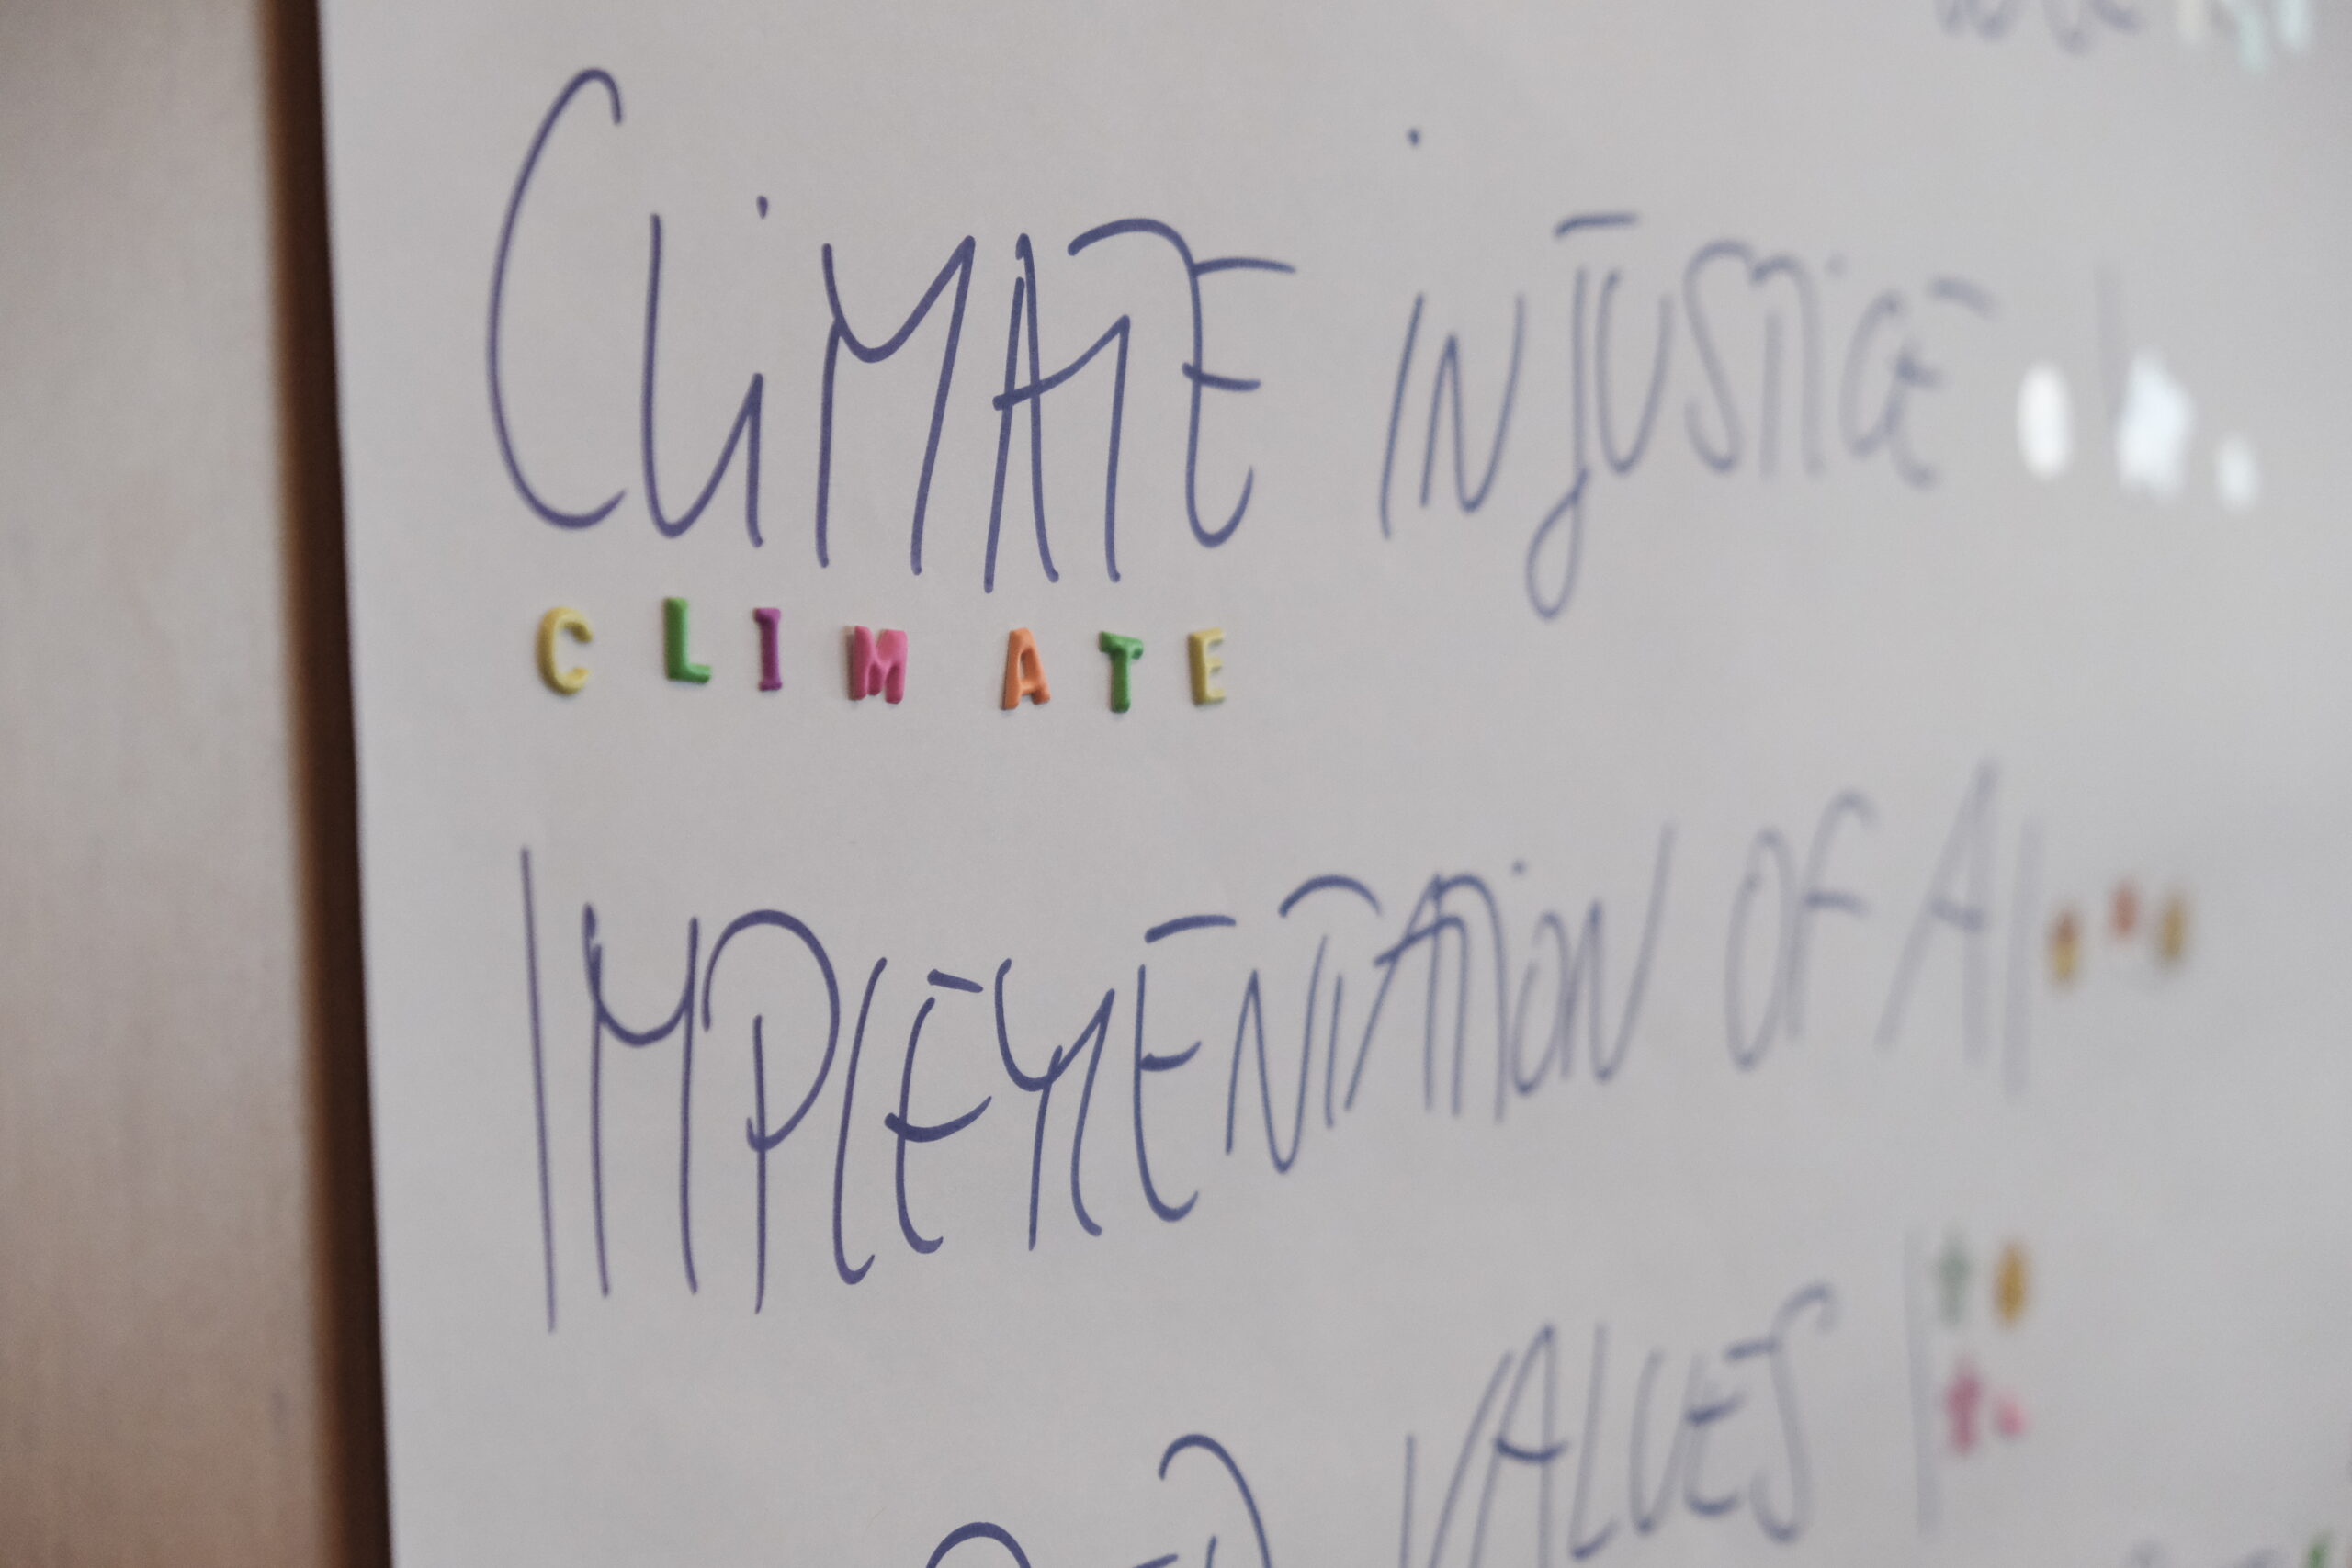 CLiMATE iNJUSTiCE
CLIMATE
IMPLEMENTATiON OF AI
VALUES